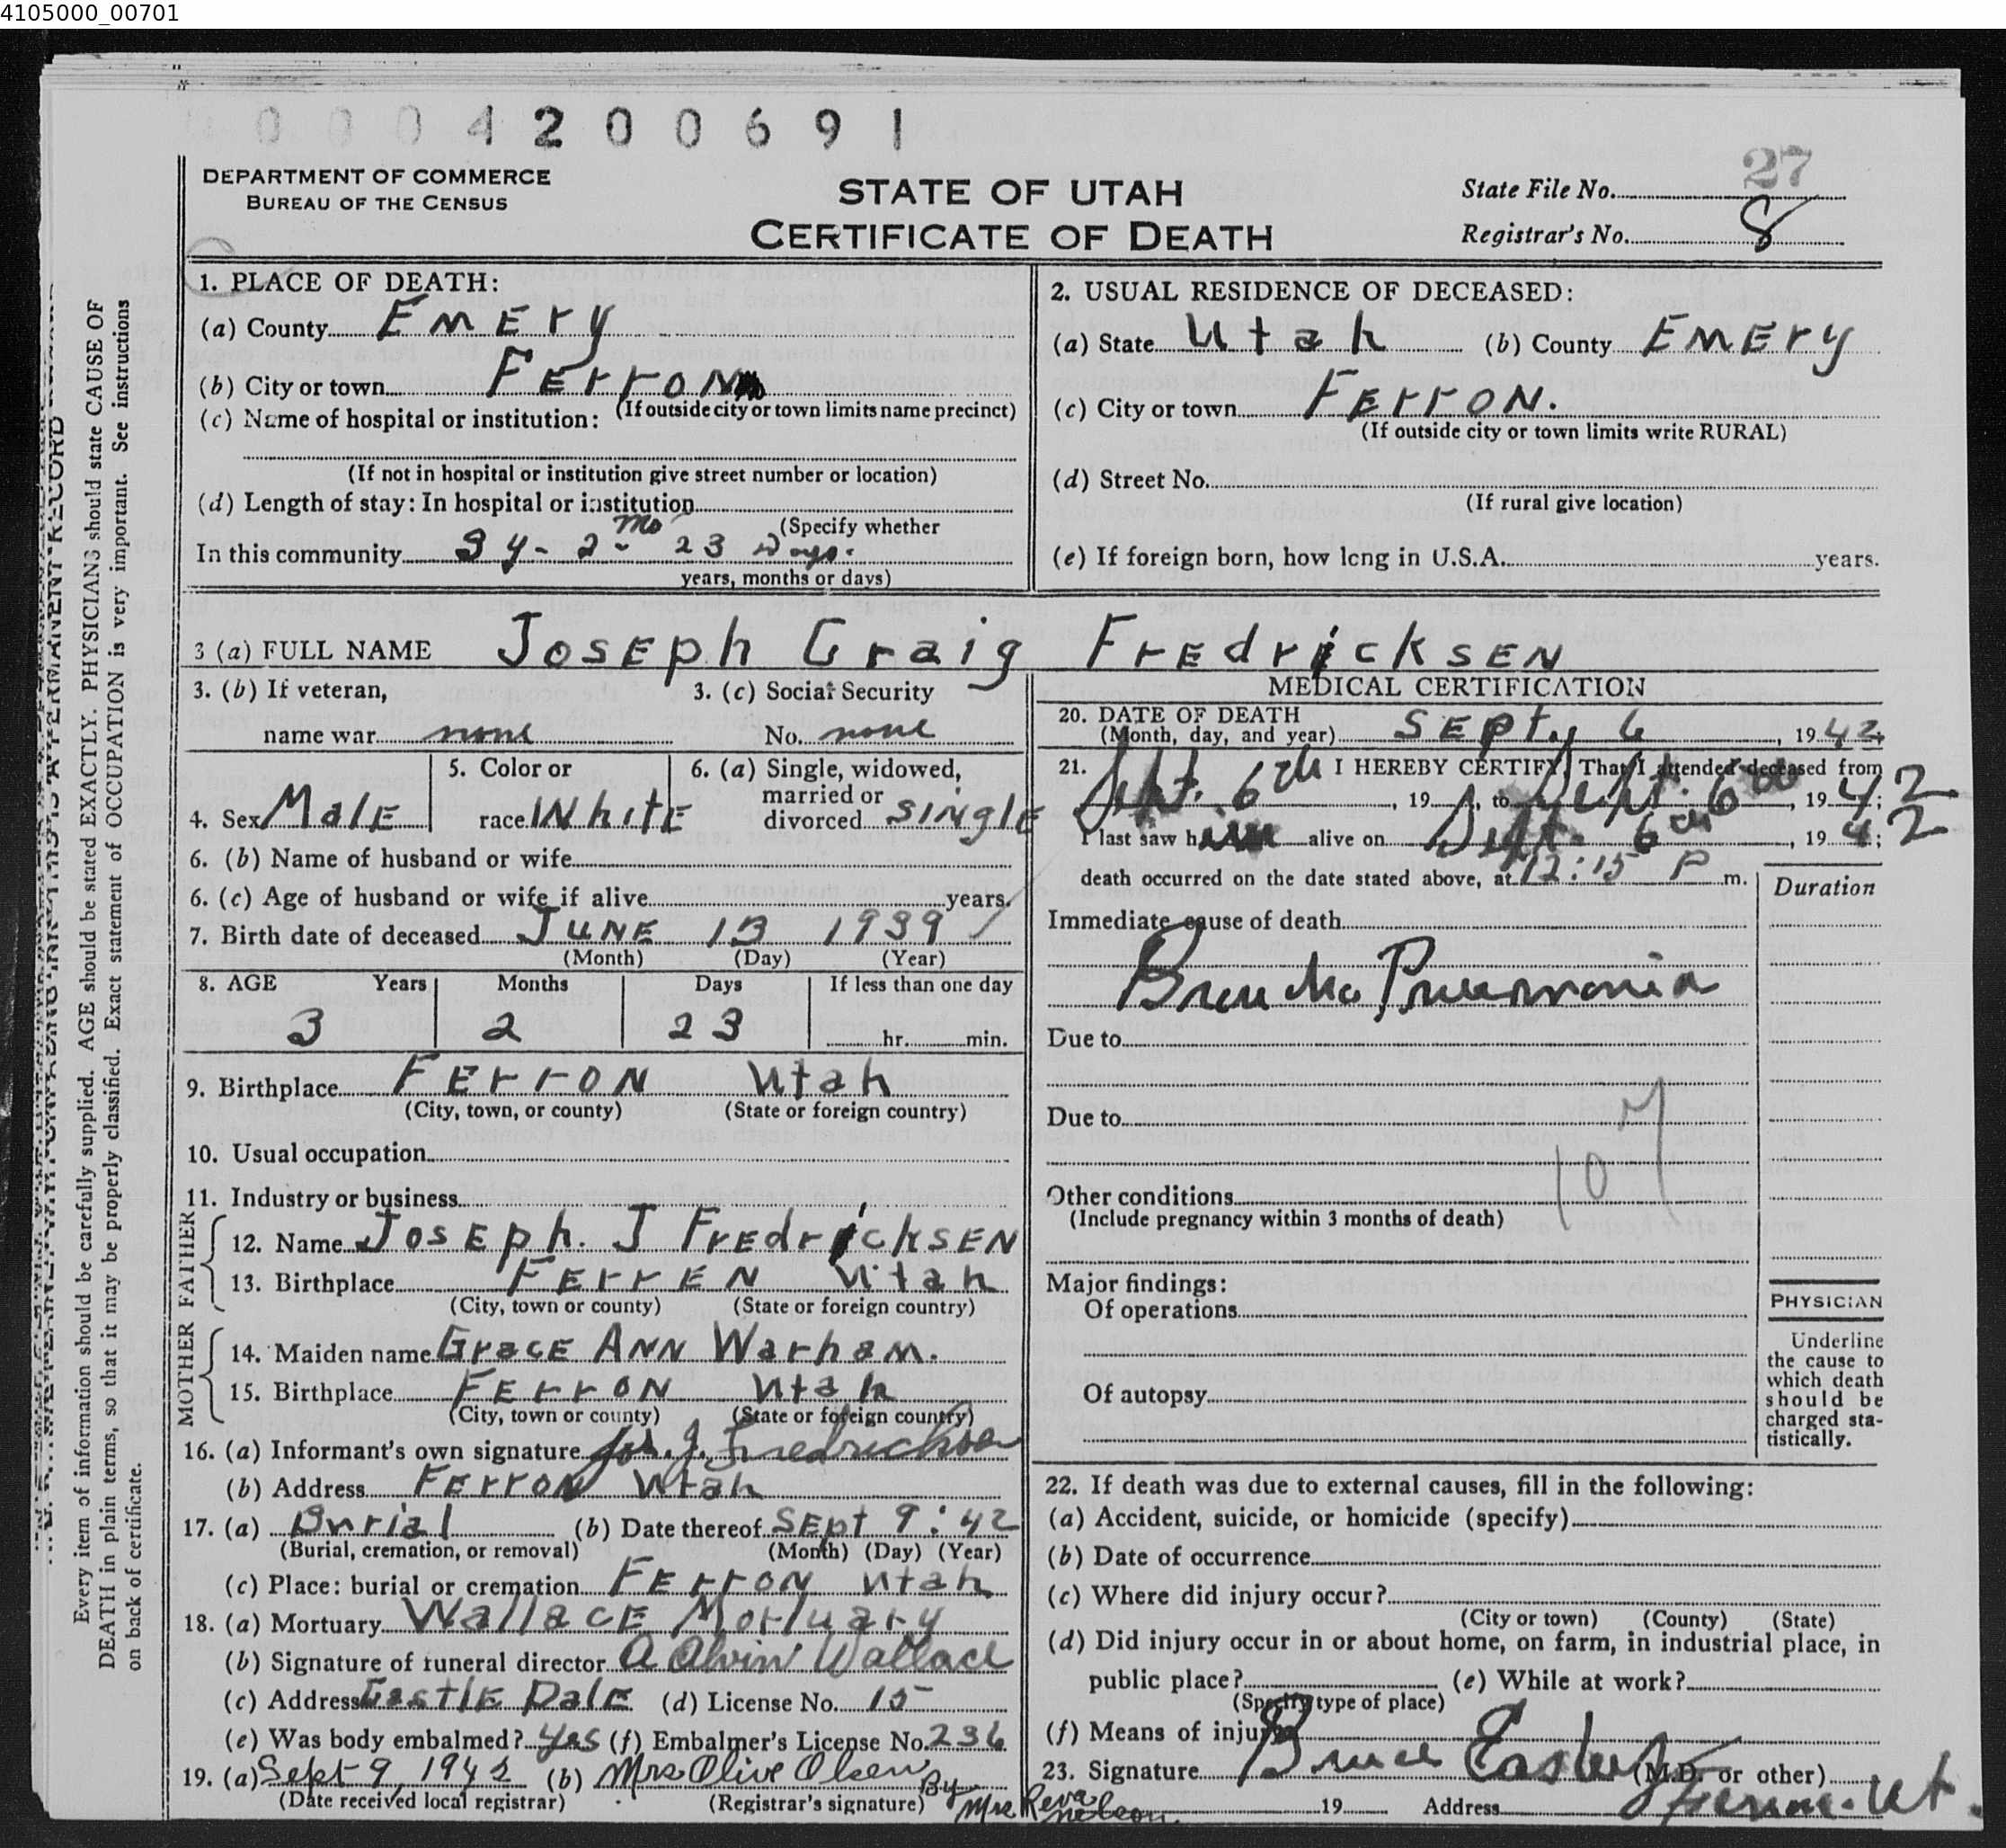 4105000_00701
0004200691
DEPARTMENT OF COMMERCE
BUREAU OF THE CENSUS
STATE OF UTAH
CERTIFICATE OF DEATH
State File No. 27
Registrar's No. 8
1. PLACE OF DEATH:
(a) County Emery
(b) City or town Ferron
(If outside city or town limits name precinct)
(c) Name of hospital or institution:
(If not in hospital or institution give street number or location)
(d) Length of stay: In hospital or institution
(Specify whether
In this community 3 y- 2- mo 23 Days.
years, months or days)
2. USUAL RESIDENCE OF DECEASED:
(a) State Utah (b) County Emery
(c) City or town Ferron.
(If outside city or town limits write RURAL)
(d) Street No.
(If rural give location)
(e) If foreign born, how long in U.S.A. years.
3 (a) FULL NAME Joseph Craig Fredricksen
3. (b) If veteran,
name war none
3. (c) Social Security
No. none
4. Sex Male
5. Color or
race White
6. (a) Single, widowed,
married or
divorced single
6. (b) Name of husband or wife
6. (c) Age of husband or wife if alive years
7. Birth date of deceased June 13 1939
(Month) (Day) (Year)
8. AGE Years Months Days If less than one day
3 2 23 hr. min.
9. Birthplace Ferron Utah
(City, town, or county) (State or foreign country)
10. Usual occupation
11. Industry or business
FATHER
12. Name Joseph. J Fredricksen
13. Birthplace Ferren Utah
(City, town or county) (State or foreign country)
MOTHER
14. Maiden name Grace Ann Warham.
15. Birthplace Ferron Utah
(City, town or county) (State or foreign country)
16. (a) Informant's own signature Jos. J. Fredricksen
(b) Address Ferron Utah
17. (a) Burial (b) Date thereof Sept 9: 42
(Burial, cremation, or removal) (Month) (Day) (Year)
(c) Place: burial or cremation Ferron Utah
18. (a) Mortuary Wallace Mortuary
(b) Signature of funeral director A Alvin Wallace
(c) Address Castle Dale (d) License No. 15
(e) Was body embalmed? Yes (f) Embalmer's License No. 236
19. (a) Sept 9, 1942 (b) Mrs Olive Olsen By
(Date received local registrar) (Registrar's signature) Mrs Reva Nelson
MEDICAL CERTIFICATION
20. DATE OF DEATH
(Month, day, and year) Sept. 6, 1942
21. I HEREBY CERTIFY, That I attended deceased from
Sept. 6th, 19 , to Sept. 6th, 1942;
I last saw him alive on Sept. 6th, 1942;
death occurred on the date stated above, at 12:15 P m.
Duration
Immediate cause of death
Broncho Pneumonia
Due to
Due to
107
Other conditions
(Include pregnancy within 3 months of death)
Major findings:
Of operations
Of autopsy
PHYSICIAN
Underline
the cause to
which death
should be
charged sta-
tistically.
22. If death was due to external causes, fill in the following:
(a) Accident, suicide, or homicide (specify)
(b) Date of occurrence
(c) Where did injury occur?
(City or town) (County) (State)
(d) Did injury occur in or about home, on farm, in industrial place, in
public place? (e) While at work?
(Specify type of place)
(f) Means of injury
23. Signature Bruce Easley (M.D. or other)
19 Address Ferron. Ut.
Every item of information should be carefully supplied. AGE should be stated EXACTLY. PHYSICIANS should state CAUSE OF
DEATH in plain terms, so that it may be properly classified. Exact statement of OCCUPATION is very important. See instructions
on back of certificate.